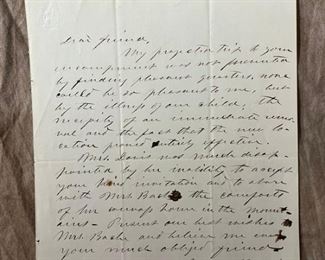 Dear friend,
My projected trip to your
encampment was not prevented
by finding pleasant quarters, none
could be so pleasant to me, but
by the illness of our child, the
necessity of an immediate
and the fact that the new lo-
cation proved entirely effective.
Mrs. Davis was much disap-
pointed by her inability to accept
your kind invitation and to share
with Mrs. Bache the comforts
of her home in the mount-
ains. Present our best wishes
Mrs. Bache and believe me ever
your much obliged friend